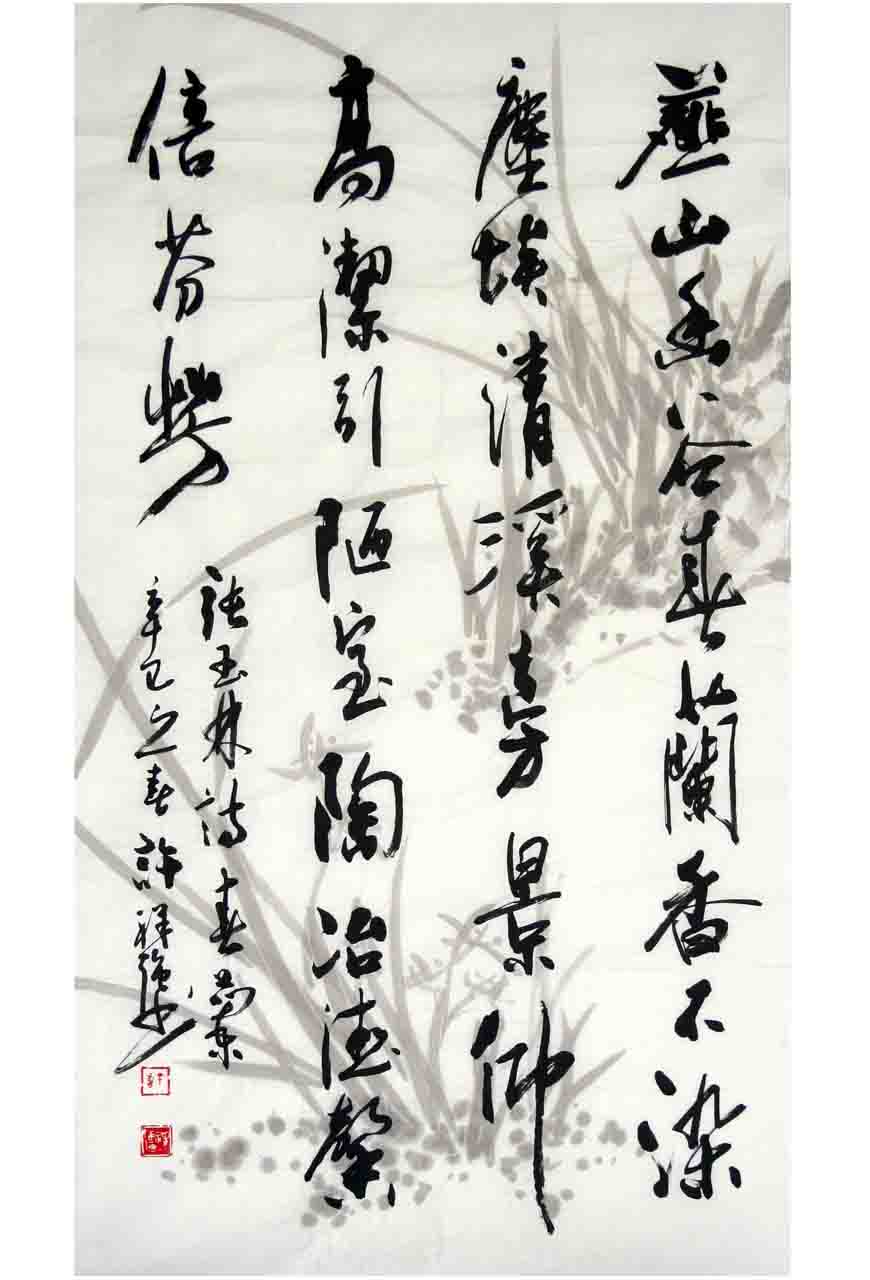 燕山幽谷春蘭香不染
塵埃清溪旁景仰
高潔引陋室陶冶德馨
倍芬芳
張玉林詩春蘭
辛巳之春許祥强书